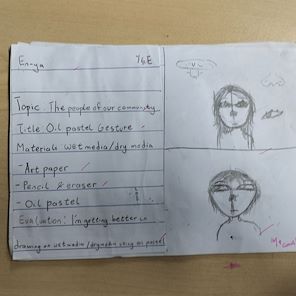 En-ya
Y6E
Topic: The people of our community
Title: Oil pastel Gesture
Materials wet media/dry media
- Art paper
- Pencil & eraser
- Oil pastel
Evaluation: I'm getting better in
drawing on wet media/dry media using oil pastel